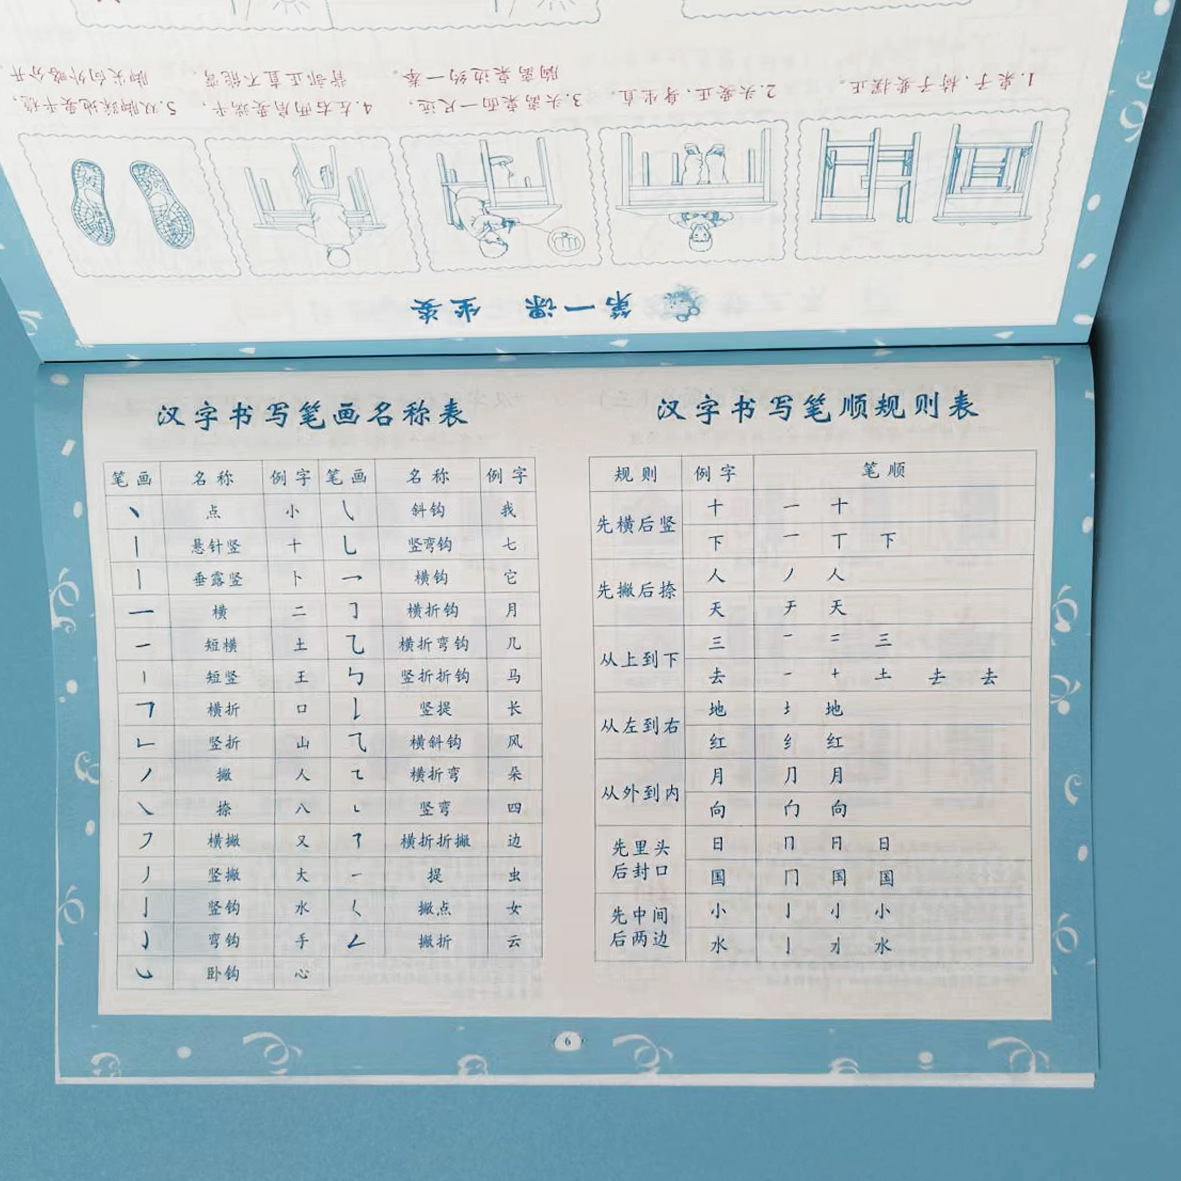 第一课 坐姿
1.桌子、椅子要摆正。
2.头要正,身坐直
3.头离桌面一尺远,
胸离桌边约一拳。
4.左右两肩要端平,
背部正直不能弯。
5.双脚踩地要平稳,
脚尖向外略分开
汉字书写笔画名称表
笔画 名称 例字 笔画 名称 例字
丶 点 小 ㇂ 斜钩 我
丨 悬针竖 十 乚 竖弯钩 七
丨 垂露竖 卜 乛 横钩 它
一 横 二 ㇆ 横折钩 月
一 短横 土 ⺄ 横折弯钩 几
丨 短竖 王 ㇉ 竖折折钩 马
㇕ 横折 口 ㇙ 竖提 长
㇗ 竖折 山 ⺄ 横斜钩 风
丿 撇 人 ㇍ 横折弯 朵
㇏ 捺 八 ㇄ 竖弯 四
㇇ 横撇 又 ㇋ 横折折撇 边
丿 竖撇 大 ㇀ 提 虫
亅 竖钩 水 ㇛ 撇点 女
㇁ 弯钩 手 ㇜ 撇折 云
㇃ 卧钩 心
汉字书写笔顺规则表
规则 例字 笔顺
先横后竖 十 一 十
下 一 丅 下
先撇后捺 人 丿 人
天 天
从上到下 三 一 二 三
去 一 十 土 去 去
从左到右 地 地
红 纟 红
从外到内 月 ⺆ 月
向 向
先里头
后封口
日 冂 日 日
国 冂 国 国
先中间
后两边
小 亅 小 小
水 亅 水
6